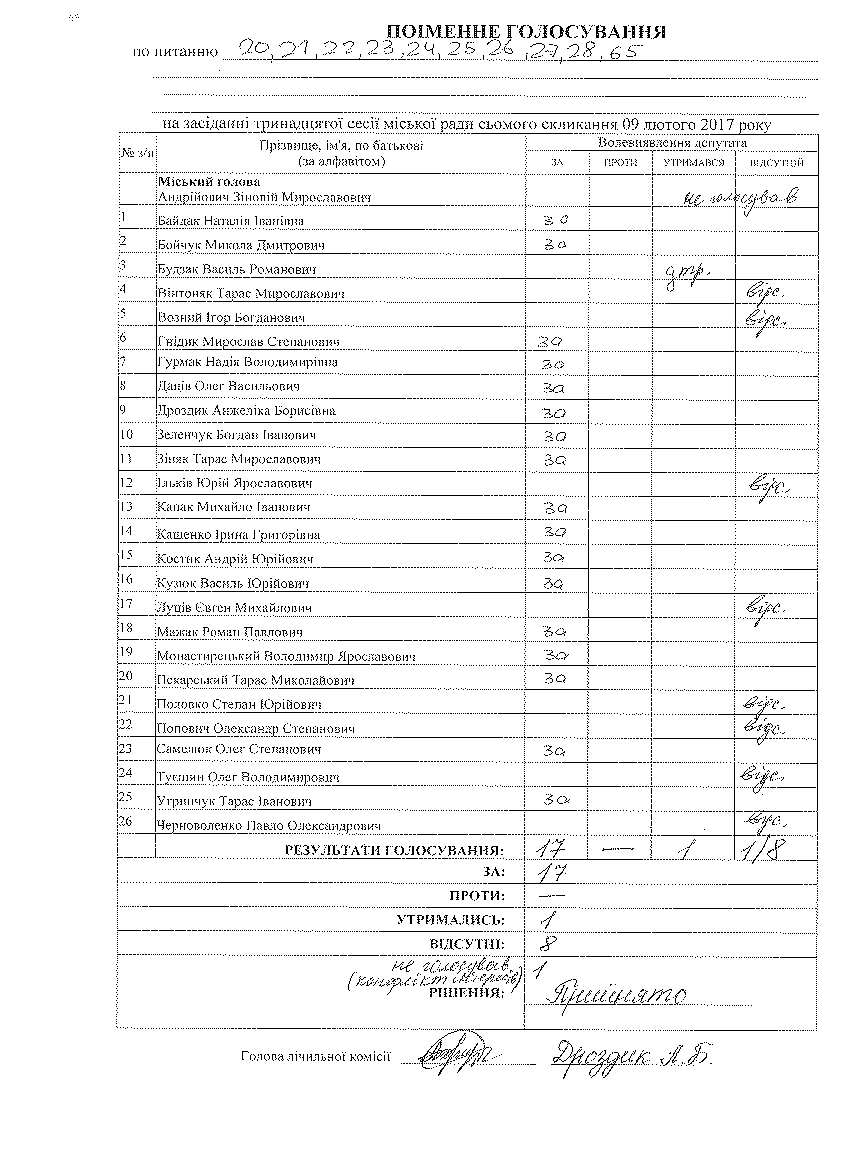 ПОІМЕННЕ ГОЛОСУВАННЯ
по питанню 20, 21, 22, 23, 24, 25, 26, 27, 28, 65
на засіданні тринадцятої сесії міської ради сьомого скликання 09 лютого 2017 року
№ з/п Прізвище, ім'я, по батькові (за алфавітом) Волевиявлення депутата
ЗА ПРОТИ УТРИМАВСЯ ВІДСУТНІЙ
Міський голова
Андрійович Зіновій Мирославович не голосував
1 Байдак Наталія Іванівна за
2 Бойчук Микола Дмитрович за
3 Будзак Василь Романович утр.
4 Вінтоняк Тарас Мирославович відс.
5 Возний Ігор Богданович відс.
6 Гнідик Мирослав Степанович за
7 Гурмак Надія Володимирівна за
8 Даців Олег Васильович за
9 Дроздик Анжеліка Борисівна за
10 Зеленчук Богдан Іванович за
11 Зіняк Тарас Мирославович за
12 Ільків Юрій Ярославович відс.
13 Капак Михайло Іванович за
14 Кащенко Ірина Григорівна за
15 Костик Андрій Юрійович за
16 Кузюк Василь Юрійович за
17 Луців Євген Михайлович відс.
18 Мажак Роман Павлович за
19 Монастирецький Володимир Ярославович за
20 Пекарський Тарас Миколайович за
21 Половко Степан Юрійович відс.
22 Попович Олександр Степанович відс.
23 Самелюк Олег Степанович за
24 Тукшин Олег Володимирович відс.
25 Угринчук Тарас Іванович за
26 Черноволенко Павло Олександрович відс.
РЕЗУЛЬТАТИ ГОЛОСУВАННЯ: 17 — 1 1/8
ЗА: 17
ПРОТИ: —
УТРИМАЛИСЬ: 1
ВІДСУТНІ: 8
не голосував 1
(конфлікт інтересів)
РІШЕННЯ: Прийнято
Голова лічильної комісії Дроздик А.Б.